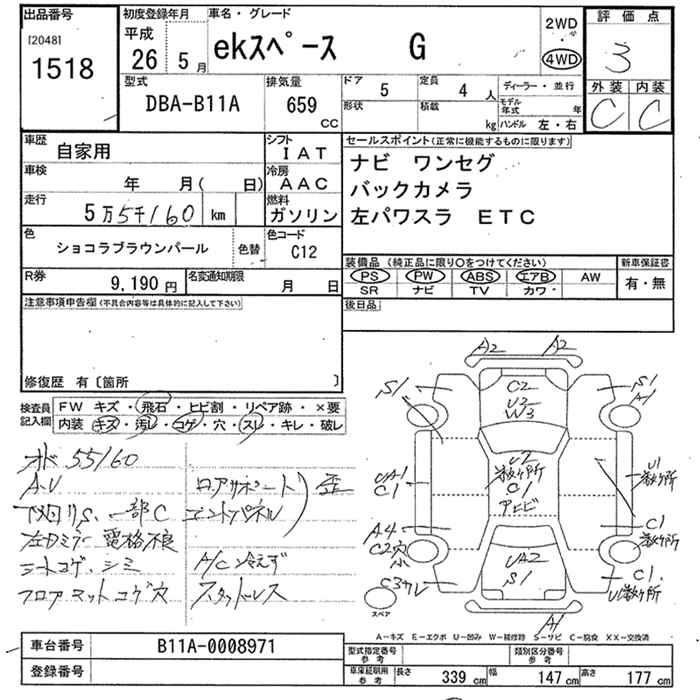 出品番号 初度登録年月 車名・グレード 2WD 評価点
[2048] 平成 ・
1518 26 5月 ekスペース G 4WD 3
型式 排気量 ドア 5 定員 4人 ディーラー・並行 外装 内装
DBA-B11A 659 CC 形状 積載 kg モデル年式 年 C C
ハンドル 左・右
車歴 自家用 シフト IAT セールスポイント(正常に機能するものに限ります)
車検 年 月( 日) 冷房 AAC ナビ ワンセグ
走行 5万5千160 km 燃料 ガソリン バックカメラ
左パワスラ ETC
色 ショコラブラウンパール 色替 色コード C12
装備品(純正品に限り○をつけてください) 新車保証書
R券 9,190円 名変通知期限 月 日 PS PW ABS エアB AW 有・無
SR ナビ TV カワ
注意事項申告欄(不具合内容等は具体的に記入して下さい) 後日品
修復歴 有〔箇所 〕
検査員記入欄 FW キズ・飛石・ヒビ割・リペア跡・×要
内装 キズ・汚レ・コゲ・穴・スレ・キレ・破レ
オド 55160
A.U ロアサポート 歪
下回りS、一部C エンドパネル
左Dミラー電格不良
シートコゲ、シミ A/C冷えず
フロアマットコゲ穴 スタッドレス
A2 A2
S1 C2 S1
U2 A1
W3
UA1 U2 U1
C1 数ヶ所 数ヶ所
C1
アトヒビ
A4 C1
C2穴 数ヶ所
小 UA2
C3サレ S1 C1.
U1数ヶ所
スペア A1
A-キズ E-エクボ U-凹み W-補修跡 S-サビ C-腐食 XX-交換済
車台番号 B11A-0008971 型式指定番号 参考 類別区分番号 参考
登録番号 車庫証明用 参考 長さ 339 cm 幅 147 cm 高さ 177 cm